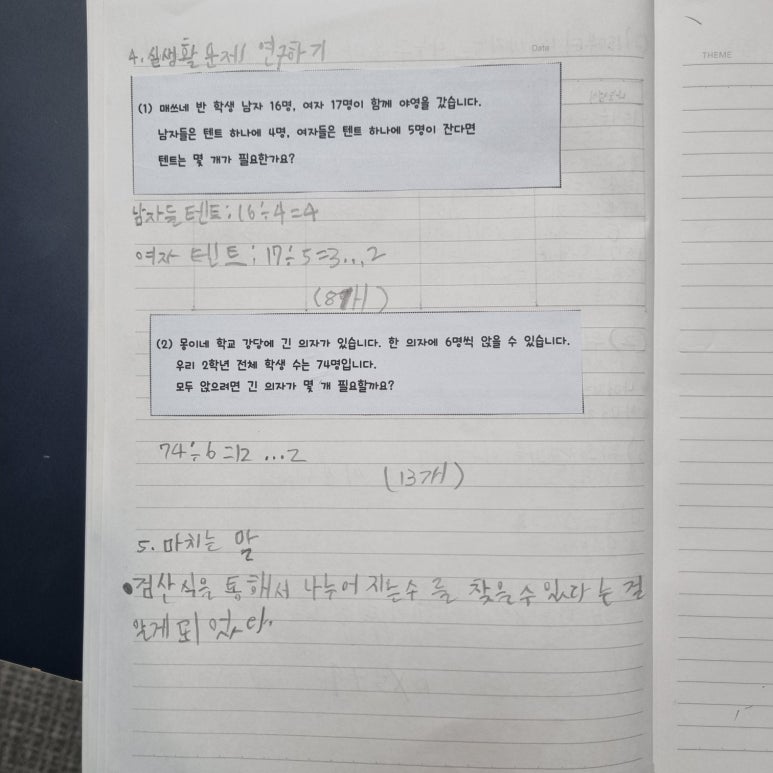 4. 실생활 문제 연구하기
Date
THEME
(1) 매쓰네 반 학생 남자 16명, 여자 17명이 함께 야영을 갔습니다.
남자들은 텐트 하나에 4명, 여자들은 텐트 하나에 5명이 잔다면
텐트는 몇 개가 필요한가요?
남자들 텐트: 16÷4=4
여자 텐트: 17÷5=3...2
(8개)
(2) 몽이네 학교 강당에 긴 의자가 있습니다. 한 의자에 6명씩 앉을 수 있습니다.
우리 2학년 전체 학생 수는 74명입니다.
모두 앉으려면 긴 의자가 몇 개 필요할까요?
74÷6=12 ...2
(13개)
5. 마치는 말
• 검산식을 통해서 나누어 지는수 를 찾을수 있다 는 걸
알게 되 었 다.